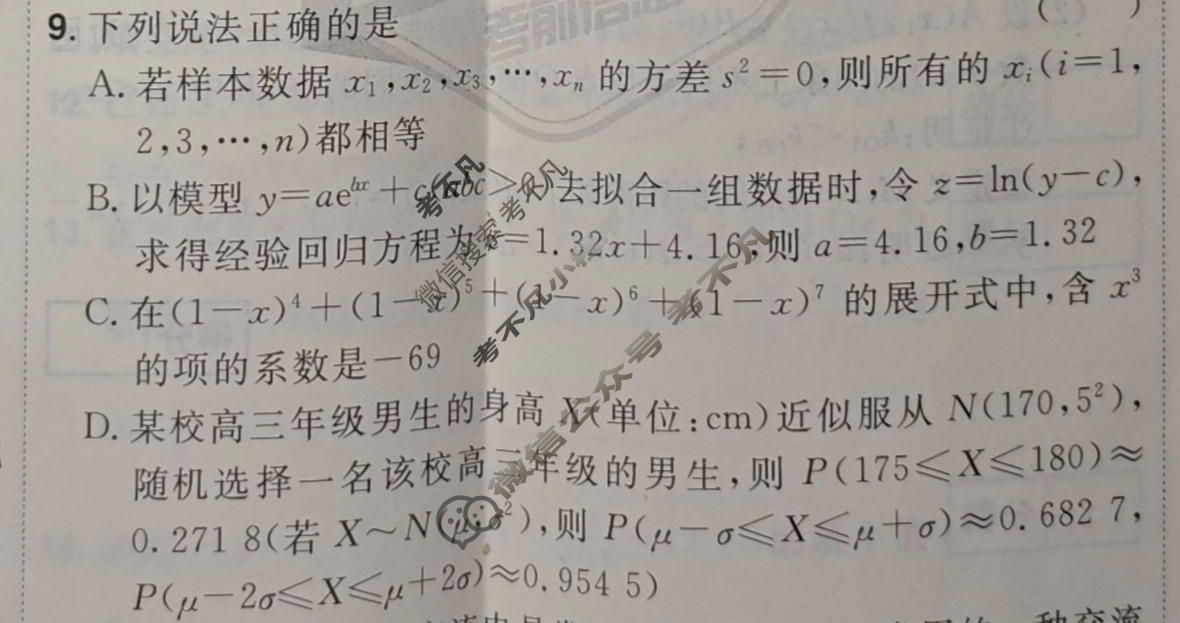 考前信息
9. 下列说法正确的是 ( )
A. 若样本数据 x₁,x₂,x₃,…,xₙ 的方差 s²=0,则所有的 xᵢ(i=1,
2,3,…,n)都相等
B. 以模型 y=ae^{bx}+c(abc>0)去拟合一组数据时,令 z=ln(y-c),
求得经验回归方程为z=1.32x+4.16,则 a=4.16,b=1.32
C. 在(1-x)⁴+(1-x)⁵+(1-x)⁶+(1-x)⁷ 的展开式中,含 x³
的项的系数是-69
D. 某校高三年级男生的身高 X(单位:cm)近似服从 N(170,5²),
随机选择一名该校高三年级的男生,则 P(175≤X≤180)≈
0.271 8(若 X~N(μ,σ²),则 P(μ-σ≤X≤μ+σ)≈0.682 7,
P(μ-2σ≤X≤μ+2σ)≈0.954 5)
考不凡
微信搜索考不凡
考不凡小
微信公众号 考不凡